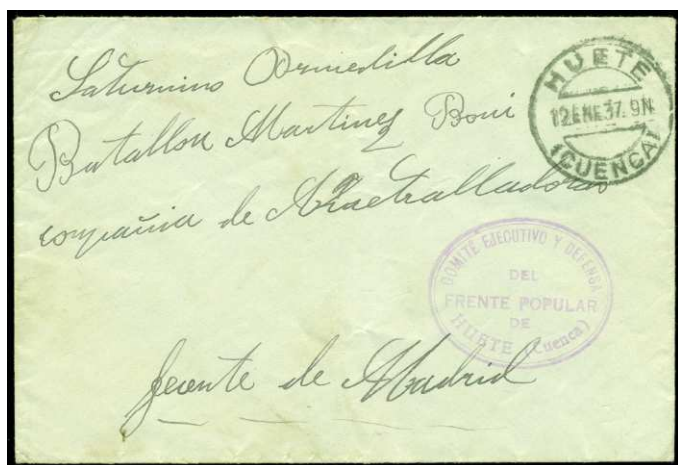 Saturnino Ormedilla
Batallon Martinez Boni
compañia de Ametralladoras
frente de Madrid
HUETE
12 ENE 37. 9N
(CUENCA)
COMITÉ EJECUTIVO Y DEFENSA
DEL
FRENTE POPULAR
DE
HUETE (Cuenca)